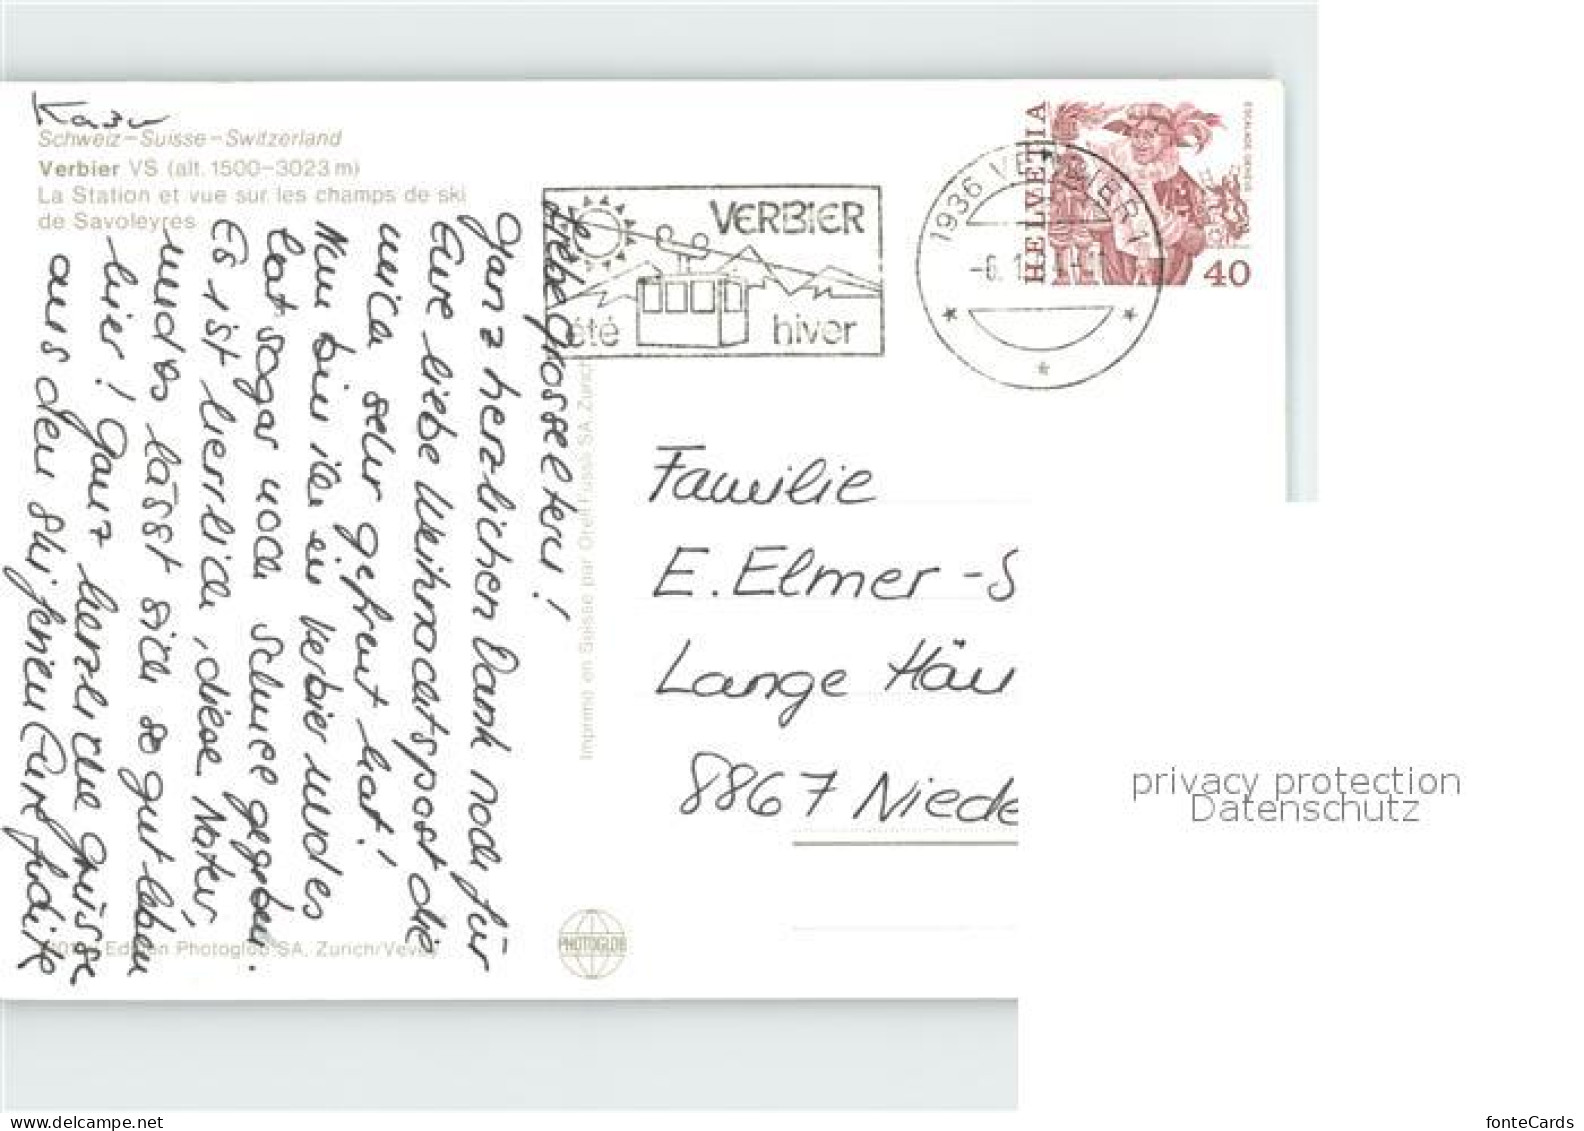 Kazu
Schweiz–Suisse–Switzerland
Verbier VS (alt. 1500–3023 m)
La Station et vue sur les champs de ski
de Savoleyres
Liebe Grosseltern!
Ganz herzlichen Dank noch für
Eure liebe Weihnachtspost die
mich sehr gefreut hat!
Nun bin ich in Verbier und es
hat sogar noch Schnee gegeben.
Es ist herrlich, diese Natur,
und es lässt sich so gut leben
hier! Ganz herzliche Grüsse
aus den Skiferien Eure Judith
Edition Photoglob SA, Zürich/Vevey
Imprimé en Suisse par Orell Füssli SA, Zürich
PHOTOGLOB
VERBIER
été hiver
1936 VERBIER 1
HELVETIA
ESCALADE GENÈVE
40
Familie
E. Elmer - S
Lange Häu
8867 Niede
privacy protection
Datenschutz
www.delcampe.net
fonteCards